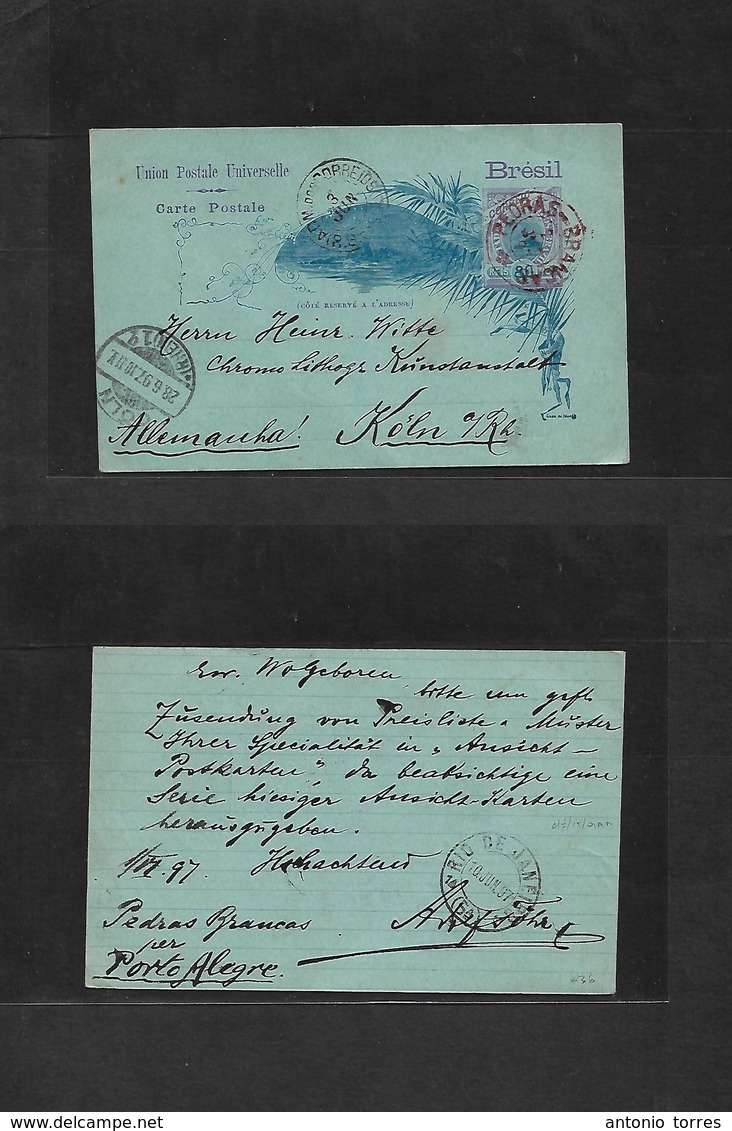 Union Postale Universelle
Carte Postale
Brésil
ADM. DOS CORREIOS
3
JUN
PEDRAS-BRANCAS
80
(CÔTÉ RESERVÉ A L'ADRESSE)
Herrn Heinr. Witte
Chromo lithogr. Kunstanstalt
Allemanha! Köln a/Rh.
CÖLN
28.6.97.
Ew. Wolgeboren
bitte um gefl.
Zusendung von Preisliste u Muster
Ihrer Specialität in „Ansicht-
Postkarten", da beabsichtige eine
Serie hiesiger Ansicht-Karten
herauszugeben.
1/VI. 97. Hochachtend
RIO DE JANEIRO
10 JUN 97
Pedras Brancas
per
Porto Alegre.
antonio torres